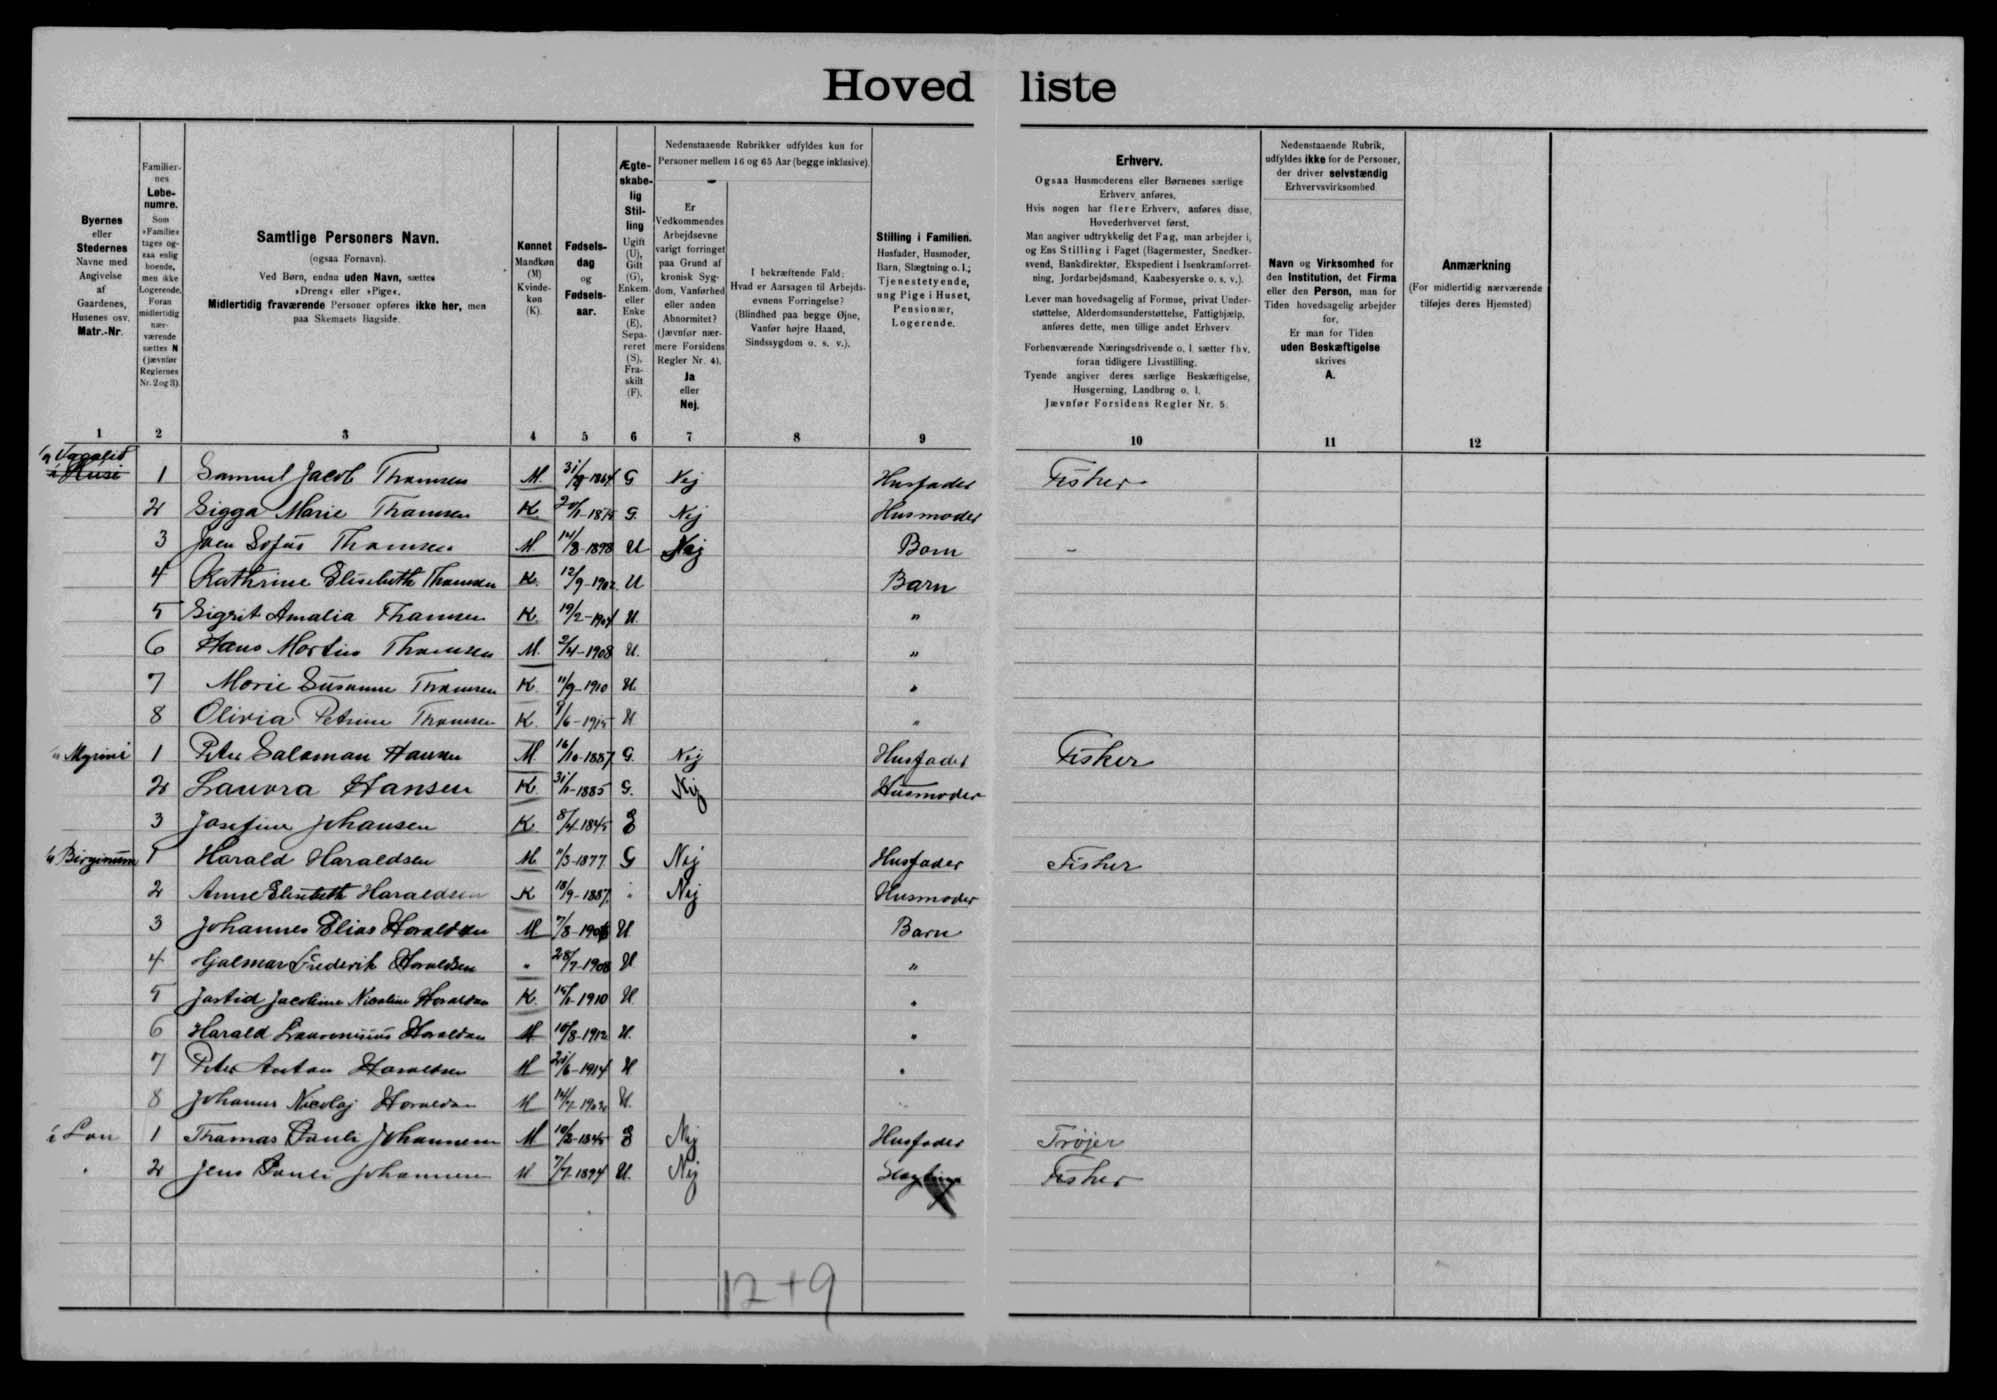 Hovedliste
Byernes
eller
Stedernes
Navne med
Angivelse
af
Gaardenes,
Husenes osv.
Matr.-Nr.
Familier-
nes
Løbe-
numre.
Som
»Familie«
tages og-
saa enlig
boende,
men ikke
Logerende.
Foran
midlertidig
nær-
værende
sættes N
(jævnfør
Reglernes
Nr. 2 og 3).
Samtlige Personers Navn.
(ogsaa Fornavn).
Ved Børn, endnu uden Navn, sættes
»Dreng« eller »Pige«.
Midlertidig fraværende Personer opføres ikke her, men
paa Skemaets Bagside.
Kønnet
Mandkøn
(M)
Kvinde-
køn
(K).
Fødsels-
dag
og
Fødsels-
aar.
Ægte-
skabe-
lig
Stil-
ling
Ugift
(U),
Gift
(G),
Enkem.
eller
Enke
(E),
Sepa-
reret
(S),
Fra-
skilt
(F).
Nedenstaaende Rubrikker udfyldes kun for
Personer mellem 16 og 65 Aar (begge inklusive).
Er
Vedkommendes
Arbejdsevne
varigt forringet
paa Grund af
kronisk Syg-
dom, Vanførhed
eller anden
Abnormitet?
(Jævnfør nær-
mere Forsidens
Regler Nr. 4).
Ja
eller
Nej.
I bekræftende Fald:
Hvad er Aarsagen til Arbejds-
evnens Forringelse?
(Blindhed paa begge Øjne,
Vanfør højre Haand,
Sindssygdom o. s. v.).
Stilling i Familien.
Husfader, Husmoder,
Barn, Slægtning o. l.;
Tjenestetyende,
ung Pige i Huset,
Pensionær,
Logerende.
Erhverv.
Ogsaa Husmoderens eller Børnenes særlige
Erhverv anføres.
Hvis nogen har flere Erhverv, anføres disse,
Hovederhvervet først.
Man angiver udtrykkelig det Fag, man arbejder i,
og Ens Stilling i Faget (Bagermester, Snedker-
svend, Bankdirektør, Ekspedient i Isenkramforret-
ning, Jordarbejdsmand, Kaabesyerske o. s. v.).
Lever man hovedsagelig af Formue, privat Under-
støttelse, Alderdomsunderstøttelse, Fattighjælp,
anføres dette, men tillige andet Erhverv
Forhenværende Næringsdrivende o. l. sætter fhv.
foran tidligere Livsstilling.
Tyende angiver deres særlige Beskæftigelse,
Husgerning, Landbrug o. l.
Jævnfør Forsidens Regler Nr. 5.
Nedenstaaende Rubrik,
udfyldes ikke for de Personer,
der driver selvstændig
Erhvervsvirksomhed
Navn og Virksomhed for
den Institution, det Firma
eller den Person, man for
Tiden hovedsagelig arbejder
for,
Er man for Tiden
uden Beskæftigelse
skrives
A.
Anmærkning
(For midlertidig nærværende
tilføjes deres Hjemsted)
1 2 3 4 5 6 7 8 9 10 11 12
í Húsi 1 Samuel Jacob Thomsen M. 1864 G Nej Husfader Fisker
2 Sigga Marie Thomsen K G. Nej Husmoder
3 Joen Sofus Thomsen M. 1898 U Nej Barn
4 Kathrine Elisebeth Thomsen K. 12/9-1902 U Barn
5 Sigrit Amalia Thomsen K. 19/2-1904 U. "
6 Hans Martin Thomsen M. 2/4-1908 U. "
7 Marie Susanne Thomsen K. 11/9-1910 U. "
8 Olivia Petrine Thomsen K. /6-1915 U "
Myrini 1 Peter Salomon Hansen M. 16/10-1887 G. Nej Husfader Fisker
2 Lauvra Hansen K. 31/1-1885 G. Nej Husmoder
3 Josefine Johansen K. 8/4-1845 E
1 Harald Haraldsen M. 11/3-1877 G Nej Husfader Fisker
2 Anne Elisebeth Haraldsen K 18/9-1887 " Nej Husmoder
3 Johannes Elias Haraldsen M 7/8-1906 U Barn
4 Hjalmar Frederik Haraldsen " 28/7-1908 U "
5 Jastrid Jacobine Nicoline Haraldsen K. 15/1-1910 U. "
6 Harald Haraldsen M 10/8-1912 U. "
7 Peter Anton Haraldsen M 21/6-1914 U "
8 Johannes Nicolaj Haraldsen M U.
í Lon 1 Thomas Pauli Johannesen M 1845 E Nej Husfader Trøjer
" 2 Jens Pauli Johannesen M 7/7-1894 U. Nej Slægtning Fisker
12+9